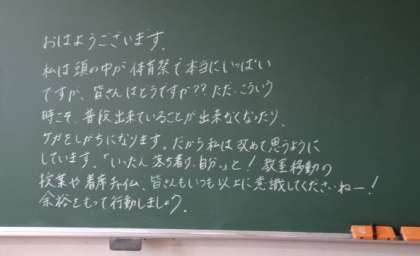 おはようございます。
私は頭の中が体育祭で本当にいっぱい
ですが、皆さんはどうですか??ただ、こういう
時こそ、普段出来ていることが出来なくなったり、
ケガをしがちになります。だから私は改めて思うように
しています。「いったん落ち着け、自分」と!教室移動の
授業や着席チャイム、皆さんもいつも以上に意識してくださいねー!
余裕をもって行動しましょう。